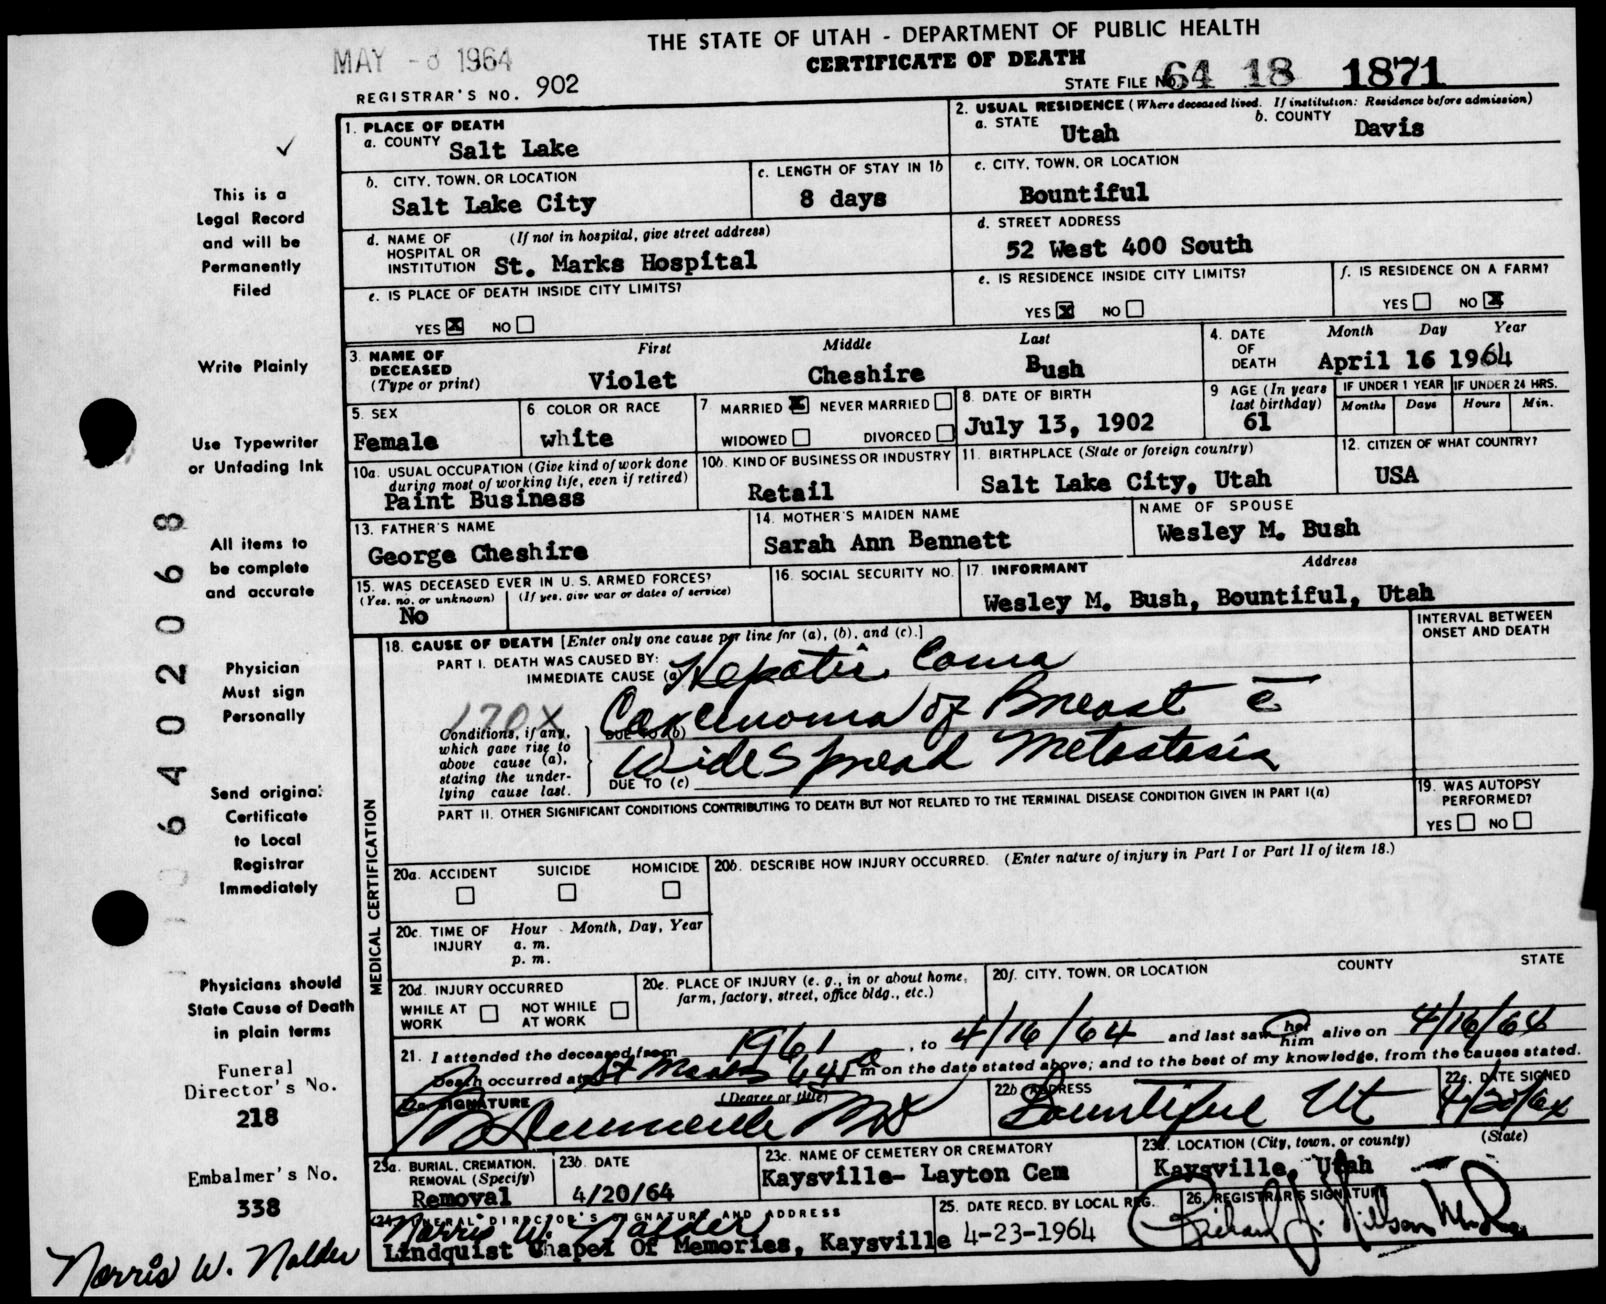 THE STATE OF UTAH - DEPARTMENT OF PUBLIC HEALTH
CERTIFICATE OF DEATH
MAY - 8 1964
REGISTRAR'S NO. 902
STATE FILE NO. 64 18 1871
1. PLACE OF DEATH
a. COUNTY Salt Lake
b. CITY, TOWN, OR LOCATION
Salt Lake City
c. LENGTH OF STAY IN 1b
8 days
d. NAME OF HOSPITAL OR INSTITUTION (If not in hospital, give street address)
St. Marks Hospital
e. IS PLACE OF DEATH INSIDE CITY LIMITS?
YES X NO
2. USUAL RESIDENCE (Where deceased lived. If institution: Residence before admission)
a. STATE Utah
b. COUNTY Davis
c. CITY, TOWN, OR LOCATION
Bountiful
d. STREET ADDRESS
52 West 400 South
e. IS RESIDENCE INSIDE CITY LIMITS?
YES X NO
f. IS RESIDENCE ON A FARM?
YES NO X
3. NAME OF DECEASED (Type or print)
First Middle Last
Violet Cheshire Bush
4. DATE OF DEATH Month Day Year
April 16 1964
5. SEX
Female
6. COLOR OR RACE
white
7. MARRIED X NEVER MARRIED
WIDOWED DIVORCED
8. DATE OF BIRTH
July 13, 1902
9 AGE (In years last birthday)
61
IF UNDER 1 YEAR IF UNDER 24 HRS.
Months Days Hours Min.
10a. USUAL OCCUPATION (Give kind of work done during most of working life, even if retired)
Paint Business
10b. KIND OF BUSINESS OR INDUSTRY
Retail
11. BIRTHPLACE (State or foreign country)
Salt Lake City, Utah
12. CITIZEN OF WHAT COUNTRY?
USA
13. FATHER'S NAME
George Cheshire
14. MOTHER'S MAIDEN NAME
Sarah Ann Bennett
NAME OF SPOUSE
Wesley M. Bush
15. WAS DECEASED EVER IN U. S. ARMED FORCES?
(Yes, no, or unknown) (If yes, give war or dates of service)
No
16. SOCIAL SECURITY NO.
17. INFORMANT Address
Wesley M. Bush, Bountiful, Utah
MEDICAL CERTIFICATION
18. CAUSE OF DEATH [Enter only one cause per line for (a), (b), and (c).]
INTERVAL BETWEEN ONSET AND DEATH
PART I. DEATH WAS CAUSED BY:
IMMEDIATE CAUSE (a) Hepatic Coma
170X
Conditions, if any, which gave rise to above cause (a), stating the underlying cause last.
DUE TO (b) Carcinoma of Breast c̄
DUE TO (c) Widespread Metastasis
PART II. OTHER SIGNIFICANT CONDITIONS CONTRIBUTING TO DEATH BUT NOT RELATED TO THE TERMINAL DISEASE CONDITION GIVEN IN PART I(a)
19. WAS AUTOPSY PERFORMED?
YES NO
20a. ACCIDENT SUICIDE HOMICIDE
20b. DESCRIBE HOW INJURY OCCURRED. (Enter nature of injury in Part I or Part II of item 18.)
20c. TIME OF INJURY Hour Month, Day, Year
a. m.
p. m.
20d. INJURY OCCURRED
WHILE AT WORK NOT WHILE AT WORK
20e. PLACE OF INJURY (e. g., in or about home, farm, factory, street, office bldg., etc.)
20f. CITY, TOWN, OR LOCATION COUNTY STATE
21. I attended the deceased from 1961, to 4/16/64 and last saw her him alive on 4/16/64
Death occurred at St Marks 645 a m on the date stated above; and to the best of my knowledge, from the causes stated.
22a. SIGNATURE (Degree or title)
MD
22b. ADDRESS
Bountiful Ut
22c. DATE SIGNED
4/20/64
23a. BURIAL, CREMATION, REMOVAL (Specify)
Removal
23b. DATE
4/20/64
23c. NAME OF CEMETERY OR CREMATORY
Kaysville- Layton Cem
23d. LOCATION (City, town, or county) (State)
Kaysville, Utah
24. FUNERAL DIRECTOR'S SIGNATURE AND ADDRESS
Norris W. Nalder
Lindquist Chapel Of Memories, Kaysville
25. DATE RECD. BY LOCAL REG.
4-23-1964
26. REGISTRAR'S SIGNATURE
This is a
Legal Record
and will be
Permanently
Filed
Write Plainly
Use Typewriter
or Unfading Ink
All items to
be complete
and accurate
Physician
Must sign
Personally
Send original
Certificate
to Local
Registrar
Immediately
Physicians should
State Cause of Death
in plain terms
Funeral
Director's No.
218
Embalmer's No.
338
Norris W. Nalder
64020068